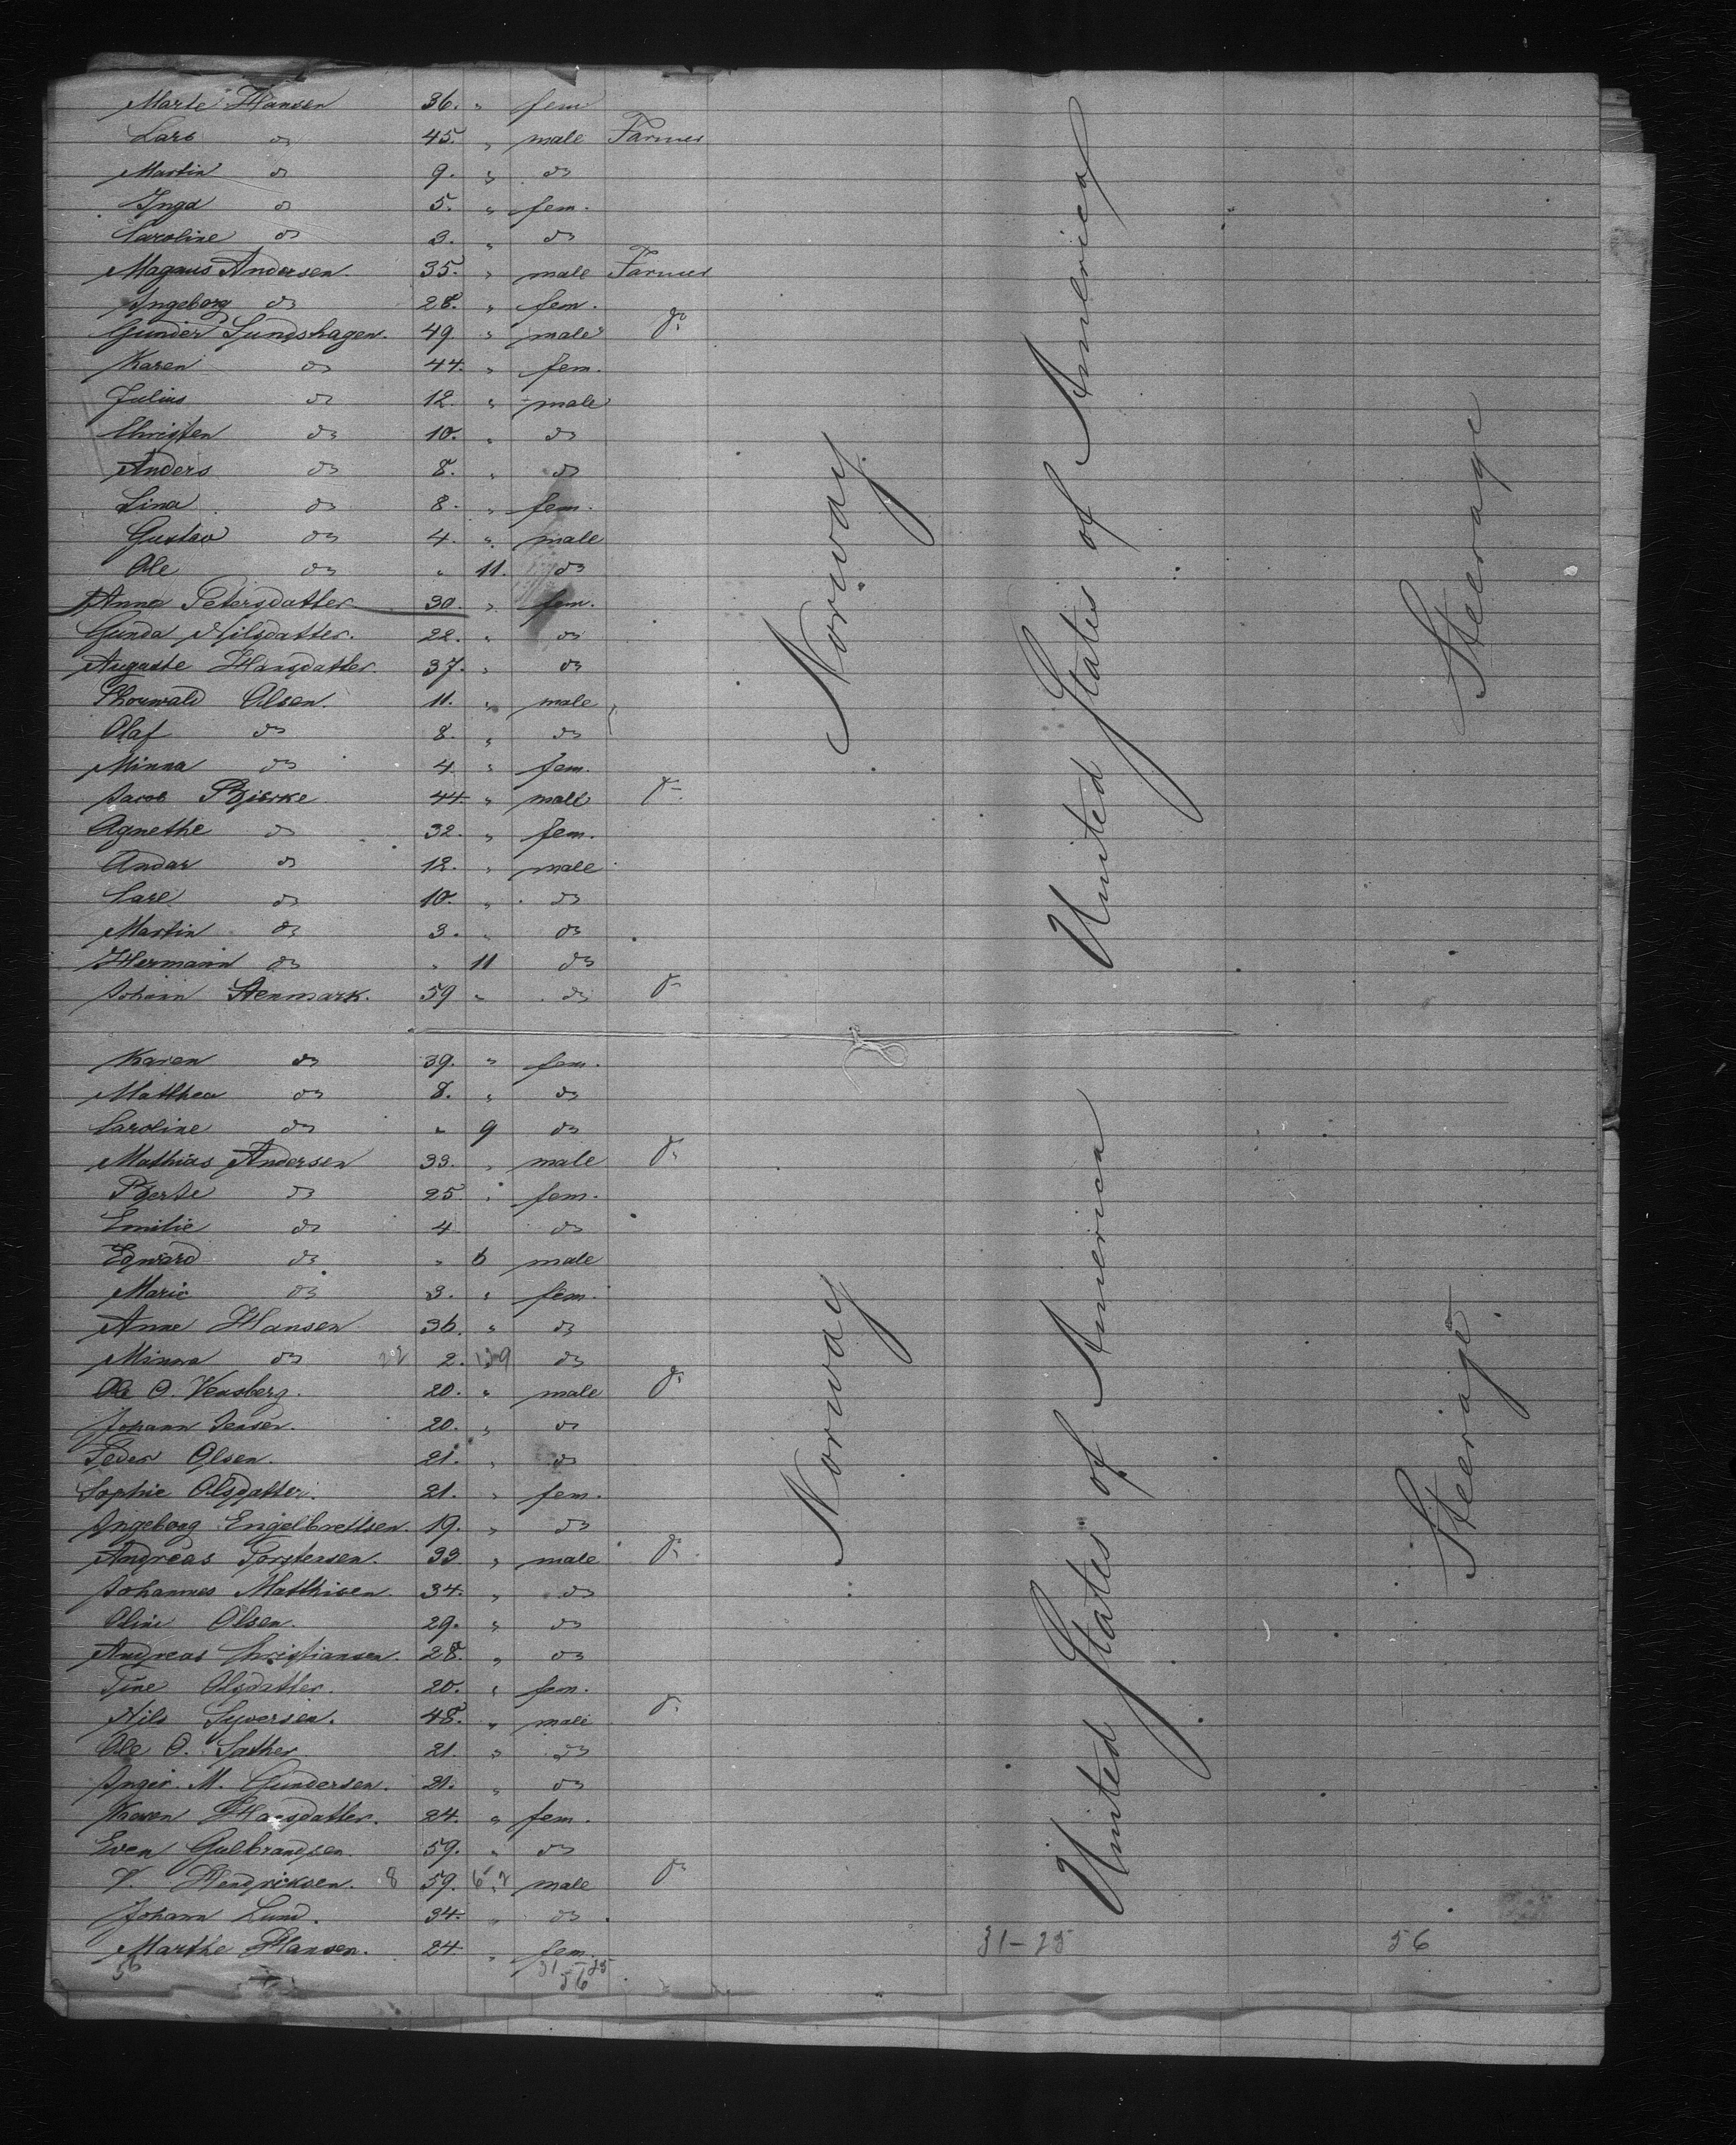 Marte Hansen 36. " fem
Lars do 45. " male Farmer
Martin do 9. " do
Inga do 5. " fem.
Caroline do 3. " do
Magnus Andersen 35. " male Farmer
Ingeborg do 28. " fem.
Gunder Lundshagen. 49. " male do
Karen do 44. " fem.
Julius do 12. " male
Christen do 10. " do
Anders do 8. " do
Lina do 8. " fem.
Gustav do 4. " male
Ole do " 11. do
Anna Petersdatter 30. " fem.
Gunda Nilsdatter. 22. " do
Auguste Hansdatter 37. " do
Thorwald Olsen. 11. " male
Olaf do 8. " do
Minna do 4. " fem.
Jacob Bjerke 44 " male do
Agnethe do 32. " fem.
Andar do 12. " male
Carl do 10. " do
Martin do 3. " do
Hermann do " 11 do
Johann Stenmark. 59 " do do
Karen do 39. " fem.
Mathea do 8. " do
Caroline do " 9 do
Mathias Andersen 33. " male do
Berte do 25 " fem.
Emilie do 4 do
Edward do " 6 male
Marie do 3. " fem.
Anne Hansen 36. " do
Minna do 2. do
Ole O. 20. " male do
Johann Jensen. 20. " do
Peder Olsen. 21. " do
Sophie Olsdatter. 21. " fem.
Ingeborg Engelbretsen. 19. " do
Andreas Torstensen. 33 " male do
Johannes Mathisen. 34. " do
Oline Olsen. 29. " do
Andreas Christiansen. 28. " do
Tine Olsdatter. 20. " fem.
Nils Syversen. 48. " male do
Ole O. Sather 21. " do
Inger M. Gundersen. 21. " do
Karen Hansdatter. 24. " fem.
Even Gulbrandsen. 59. " do
Hendriksen. 8 59. male do
Johann Lund. 34. " do
Marthe Hansen. 24 " fem.
56 31-25 31-25 56
56
Norway
United States of America
Steerage
Norway
United States of America
Steerage